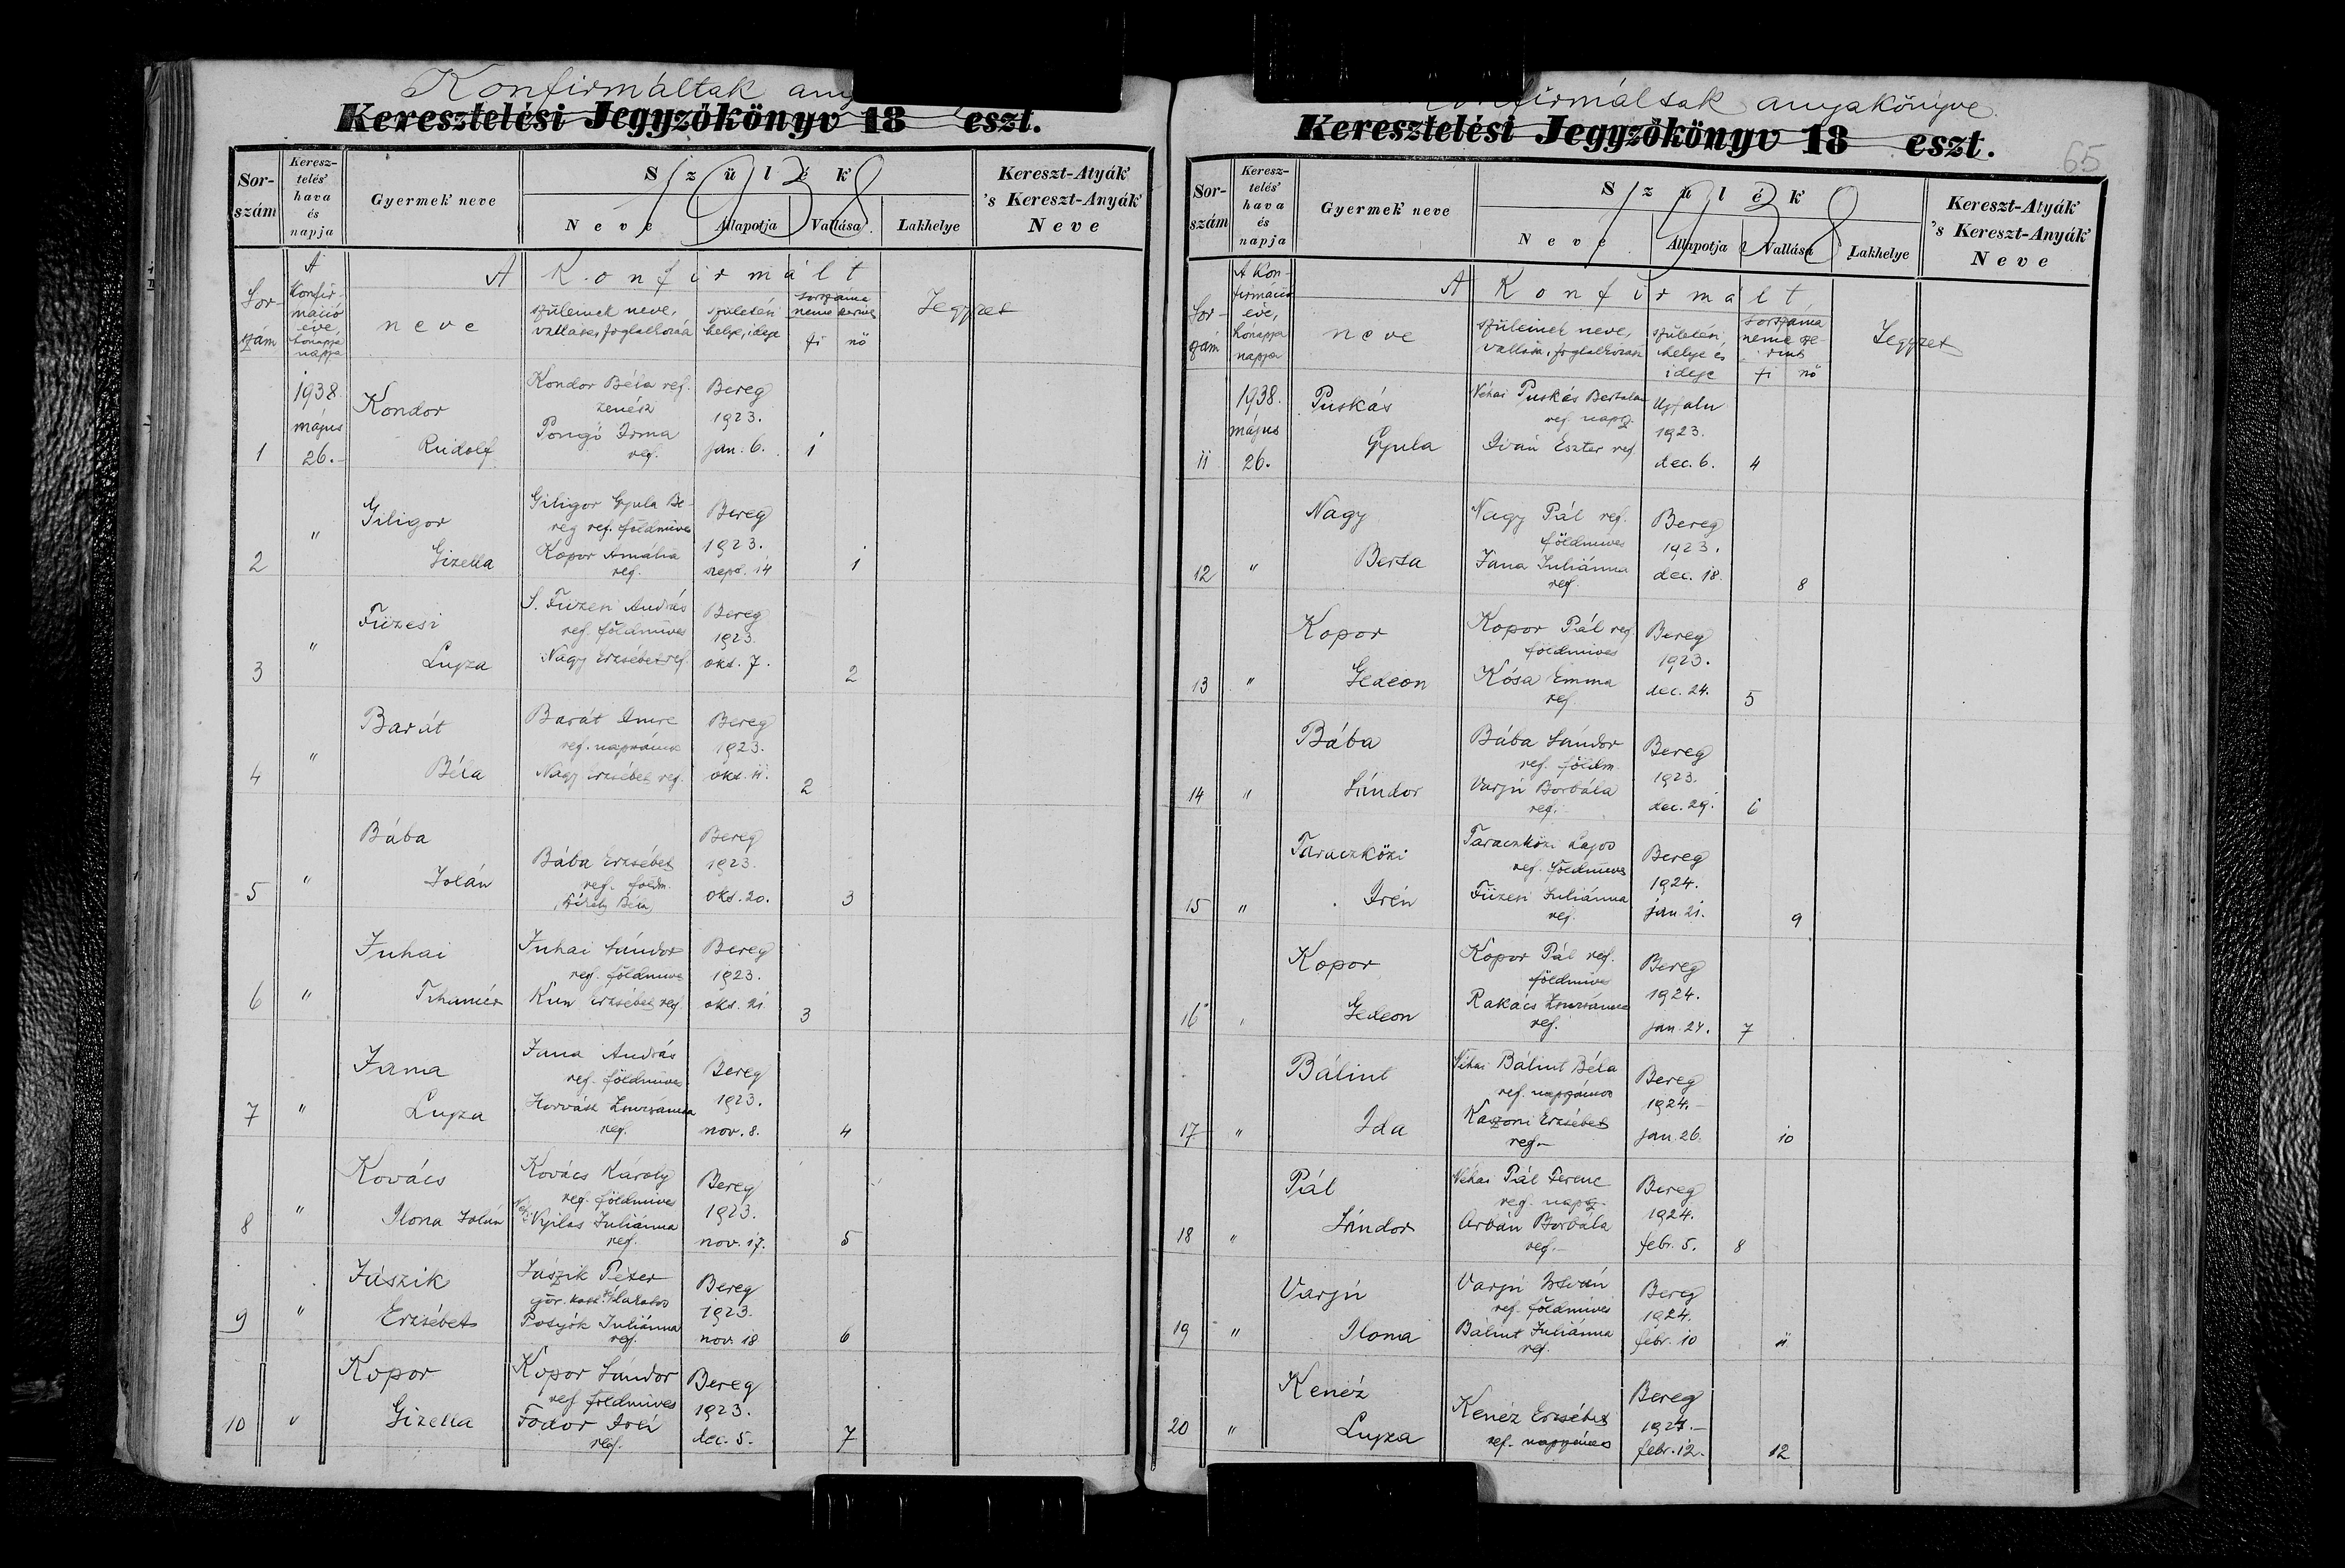 Konfirmáltak any
Keresztelési Jegyzőkönyv 18 eszt.
1938
Sor-szám
Keresz-telés' hava és napja
Gyermek' neve
Szülék'
Neve
Állapotja
Vallása
Lakhelye
Kereszt-Atyák' 's Kereszt-Anyák' Neve
Sor-szám
A Konfir-máció éve, hónapja napja
A Konfirmált
neve
szüleinek neve, vallása, foglalkozása
születési helye, ideje
sorszáma neme szerint
fi nő
Jegyzet
1938.
május
26.-
1
Kondor
Rudolf
Kondor Béla ref.
zenész
Pongó Irma
ref.
Bereg
1923.
jan. 6.
1
2
"
Giligor
Gizella
Giligor Gyula Be-
reg ref. földmüves
Kopor Amália
ref.
Bereg
1923.
szept. 14
1
3
"
Füzesi
Lujza
S. Füzesi András
ref. földmüves
Nagy Erzsébet ref.
Bereg
1923.
okt. 7.
2
4
"
Barát
Béla
Barát Imre
ref. napszámos
Nagy Erzsébet ref.
Bereg
1923.
okt. 11.
2
5
"
Bába
Jolán
Bába Erzsébet
ref. földm.
Béla
Bereg
1923.
okt. 20.
3
6
"
Juhai
Tihamér
Juhai Sándor
ref. földmüves
Kun Erzsébet ref.
Bereg
1923.
okt. 21.
3
7
"
Jama
Lujza
Jana András
ref. földmüves
Horváth Zsuzsánna
ref.
Bereg
1923.
nov. 8.
4
8
"
Kovács
Ilona Jolán
Kovács Károly
ref. földmüves
Nyilas Juliánna
ref.
Bereg
1923.
nov. 17.
5
9
"
Jászik
Erzsébet
Jászik Péter
gör. kath. lakatos
Postyók Juliánna
ref.
Bereg
1923.
nov. 18
6
10
"
Kopor
Gizella
Kopor Sándor
ref földmüves
Fodor Irén
ref.
Bereg
1923.
dec. 5.
7
Konfirmáltak anyakönyve.
Keresztelési Jegyzőkönyv 18 eszt.
65
1938
Sor-szám
Keresz-telés' hava és napja
Gyermek' neve
Szülék'
Neve
Állapotja
Vallása
Lakhelye
Kereszt-Atyák' 's Kereszt-Anyák' Neve
Sor-szám
A Kon-firmáció éve, hónapja napja
A Konfirmált
neve
szüleinek neve, vallása, foglalkozása
születési helye és ideje
sorszáma neme sze-rint
fi nő
Jegyzet
1938.
május
26.
11
Puskás
Gyula
Néhai Puskás Bertalan
ref. napsz.
Iván Eszter ref.
Ujfalu
1923.
dec. 6.
4
12
"
Nagy
Berta
Nagy Pál ref.
földmüves
Jana Juliánna
ref.
Bereg
1923.
dec. 18.
8
13
"
Kopor
Gedeon
Kopor Pál ref.
földmüves
Kósa Emma
ref.
Bereg
1923.
dec. 24.
5
14
"
Bába
Sándor
Bába Sándor
ref. földm.
Varjú Borbála
ref.
Bereg
1923.
dec. 29.
6
15
"
Taraczközi
Irén
Taraczközi Lajos
ref. földmüves
Füzesi Juliánna
ref.
Bereg
1924.
jan. 21.
9
16
"
Kopor
Gedeon
Kopor Pál ref.
földmüves
Rakács Zsuzsánna
ref.
Bereg
1924.
jan. 24.
7
17
"
Bálint
Ida
Néhai Bálint Béla
ref. napszámos
Kaszoni Erzsébet
ref.-
Bereg
1924.-
jan. 26.
10
18
"
Pál
Sándor
Néhai Pál Ferenc
ref. napsz.
Orbán Borbála
ref.-
Bereg
1924.
febr. 5.
8
19
"
Varjú
Ilona
Varjú István
ref. földmüves
Bálint Juliánna
ref.
Bereg
1924.
febr. 10
11
20
"
Kenéz
Lujza
Kenéz Erzsébet
ref. napszámos
Bereg
1924.-
febr. 12.
12